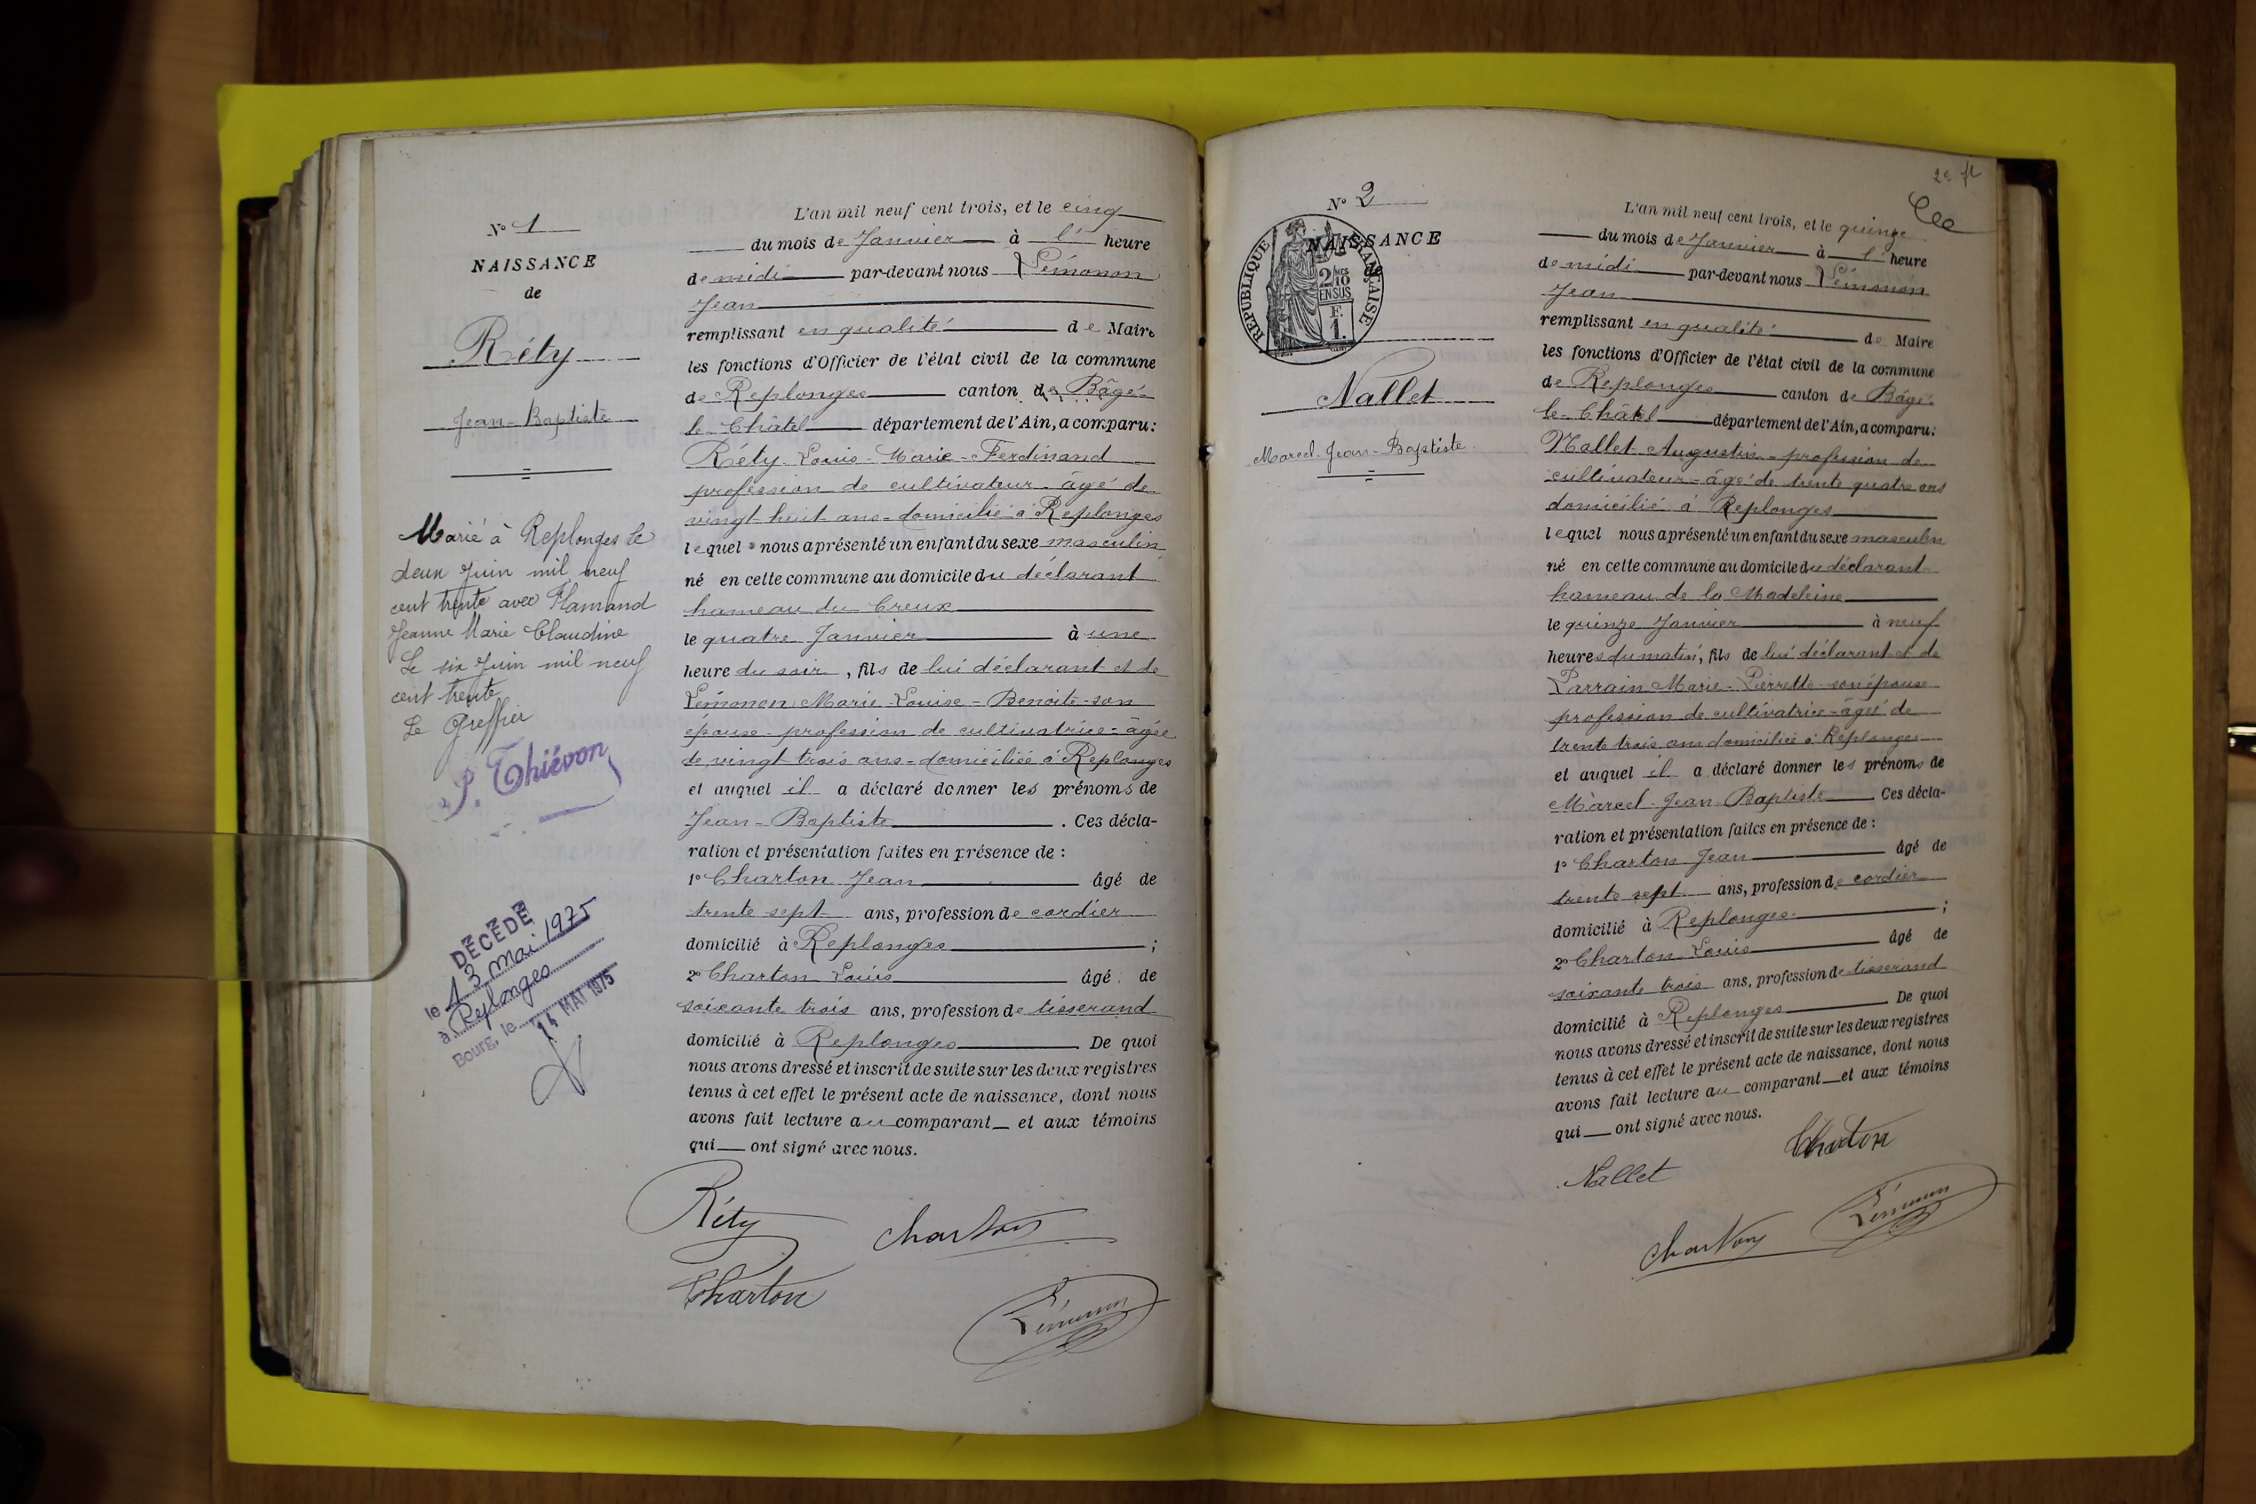 N° 1
NAISSANCE
de
Réty
Jean-Baptiste
Marié à Replonges le
deux Juin mil neuf
cent trente avec Flamand
Jeanne Marie Claudine
Le six Juin mil neuf
cent trente
Le Greffier
P. Thiévon
DÉCÉDÉ
le 13 mai 1975
à Replonges
Bourg, le 14 MAI 1975
L'an mil neuf cent trois, et le cinq
du mois de Janvier à l' heure
de midi par-devant nous Lémonon
Jean
remplissant en qualité de Maire
les fonctions d'Officier de l'état civil de la commune
de Replonges canton de Bâgé-
le-Châtel département de l'Ain, a comparu:
Réty Louis-Marie-Ferdinand
profession de cultivateur-âgé de
vingt-huit ans-domicilié à Replonges
lequel nous a présenté un enfant du sexe masculin
né en cette commune au domicile du déclarant
hameau du Creux
le quatre Janvier à une
heure du soir, fils de lui déclarant et de
Lémonon Marie-Louise-Benoite-son
épouse-profession de cultivatrice-âgée
de vingt-trois ans-domiciliée à Replonges
et auquel il a déclaré donner les prénoms de
Jean-Baptiste. Ces décla-
ration et présentation faites en présence de :
1° Charton Jean âgé de
trente sept ans, profession de cordier
domicilié à Replonges ;
2° Charton Louis âgé de
soixante trois ans, profession de tisserand
domicilié à Replonges De quoi
nous avons dressé et inscrit de suite sur les deux registres
tenus à cet effet le présent acte de naissance, dont nous
avons fait lecture au comparant et aux témoins
qui ont signé avec nous.
Réty Charton
Charton
Lémonon
2e ft
N° 2
NAISSANCE
de
RÉPUBLIQUE FRANÇAISE
2/10 EN SUS
F.
1.
Nallet
Marcel-Jean-Baptiste
L'an mil neuf cent trois, et le quinze
du mois de Janvier à l' heure
de midi par-devant nous Lémonon
Jean
remplissant en qualité de Maire
les fonctions d'Officier de l'état civil de la commune
de Replonges canton de Bâgé-
le-Châtel département de l'Ain, a comparu:
Nallet Augustin-profession de
cultivateur-âgé de trente quatre ans
domicilié à Replonges
lequel nous a présenté un enfant du sexe masculin
né en cette commune au domicile du déclarant
hameau de la Madeleine
le quinze Janvier à neuf
heures du matin, fils de lui déclarant et de
Parrain Marie-Pierrette-son épouse
profession de cultivatrice-âgée de
trente trois ans domiciliée à Replonges
et auquel il a déclaré donner les prénoms de
Marcel-Jean-Baptiste. Ces décla-
ration et présentation faites en présence de :
1° Charton Jean âgé de
trente sept ans, profession de cordier
domicilié à Replonges ;
2° Charton Louis âgé de
soixante trois ans, profession de tisserand
domicilié à Replonges De quoi
nous avons dressé et inscrit de suite sur les deux registres
tenus à cet effet le présent acte de naissance, dont nous
avons fait lecture au comparant et aux témoins
qui ont signé avec nous.
Charton
Nallet
Charton Lémonon